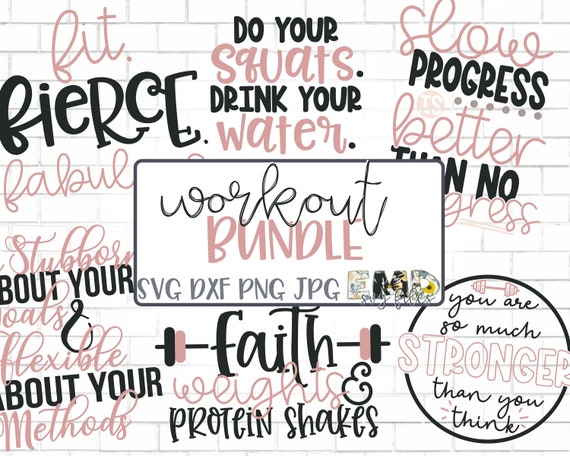 fit.
fierce.
fabul
DO YOUR
squats.
DRINK YOUR
water.
slow
PROGRESS
IS
better
THAN NO
gress
workout
BUNDLE
SVG DXF PNG JPG EMD
Stubborn
BOUT YOUR
oals
&
flexible
ABOUT YOUR
Methods
faith
weights
&
PROTEIN SHAKES
you are
so much
STRONGER
than you
think